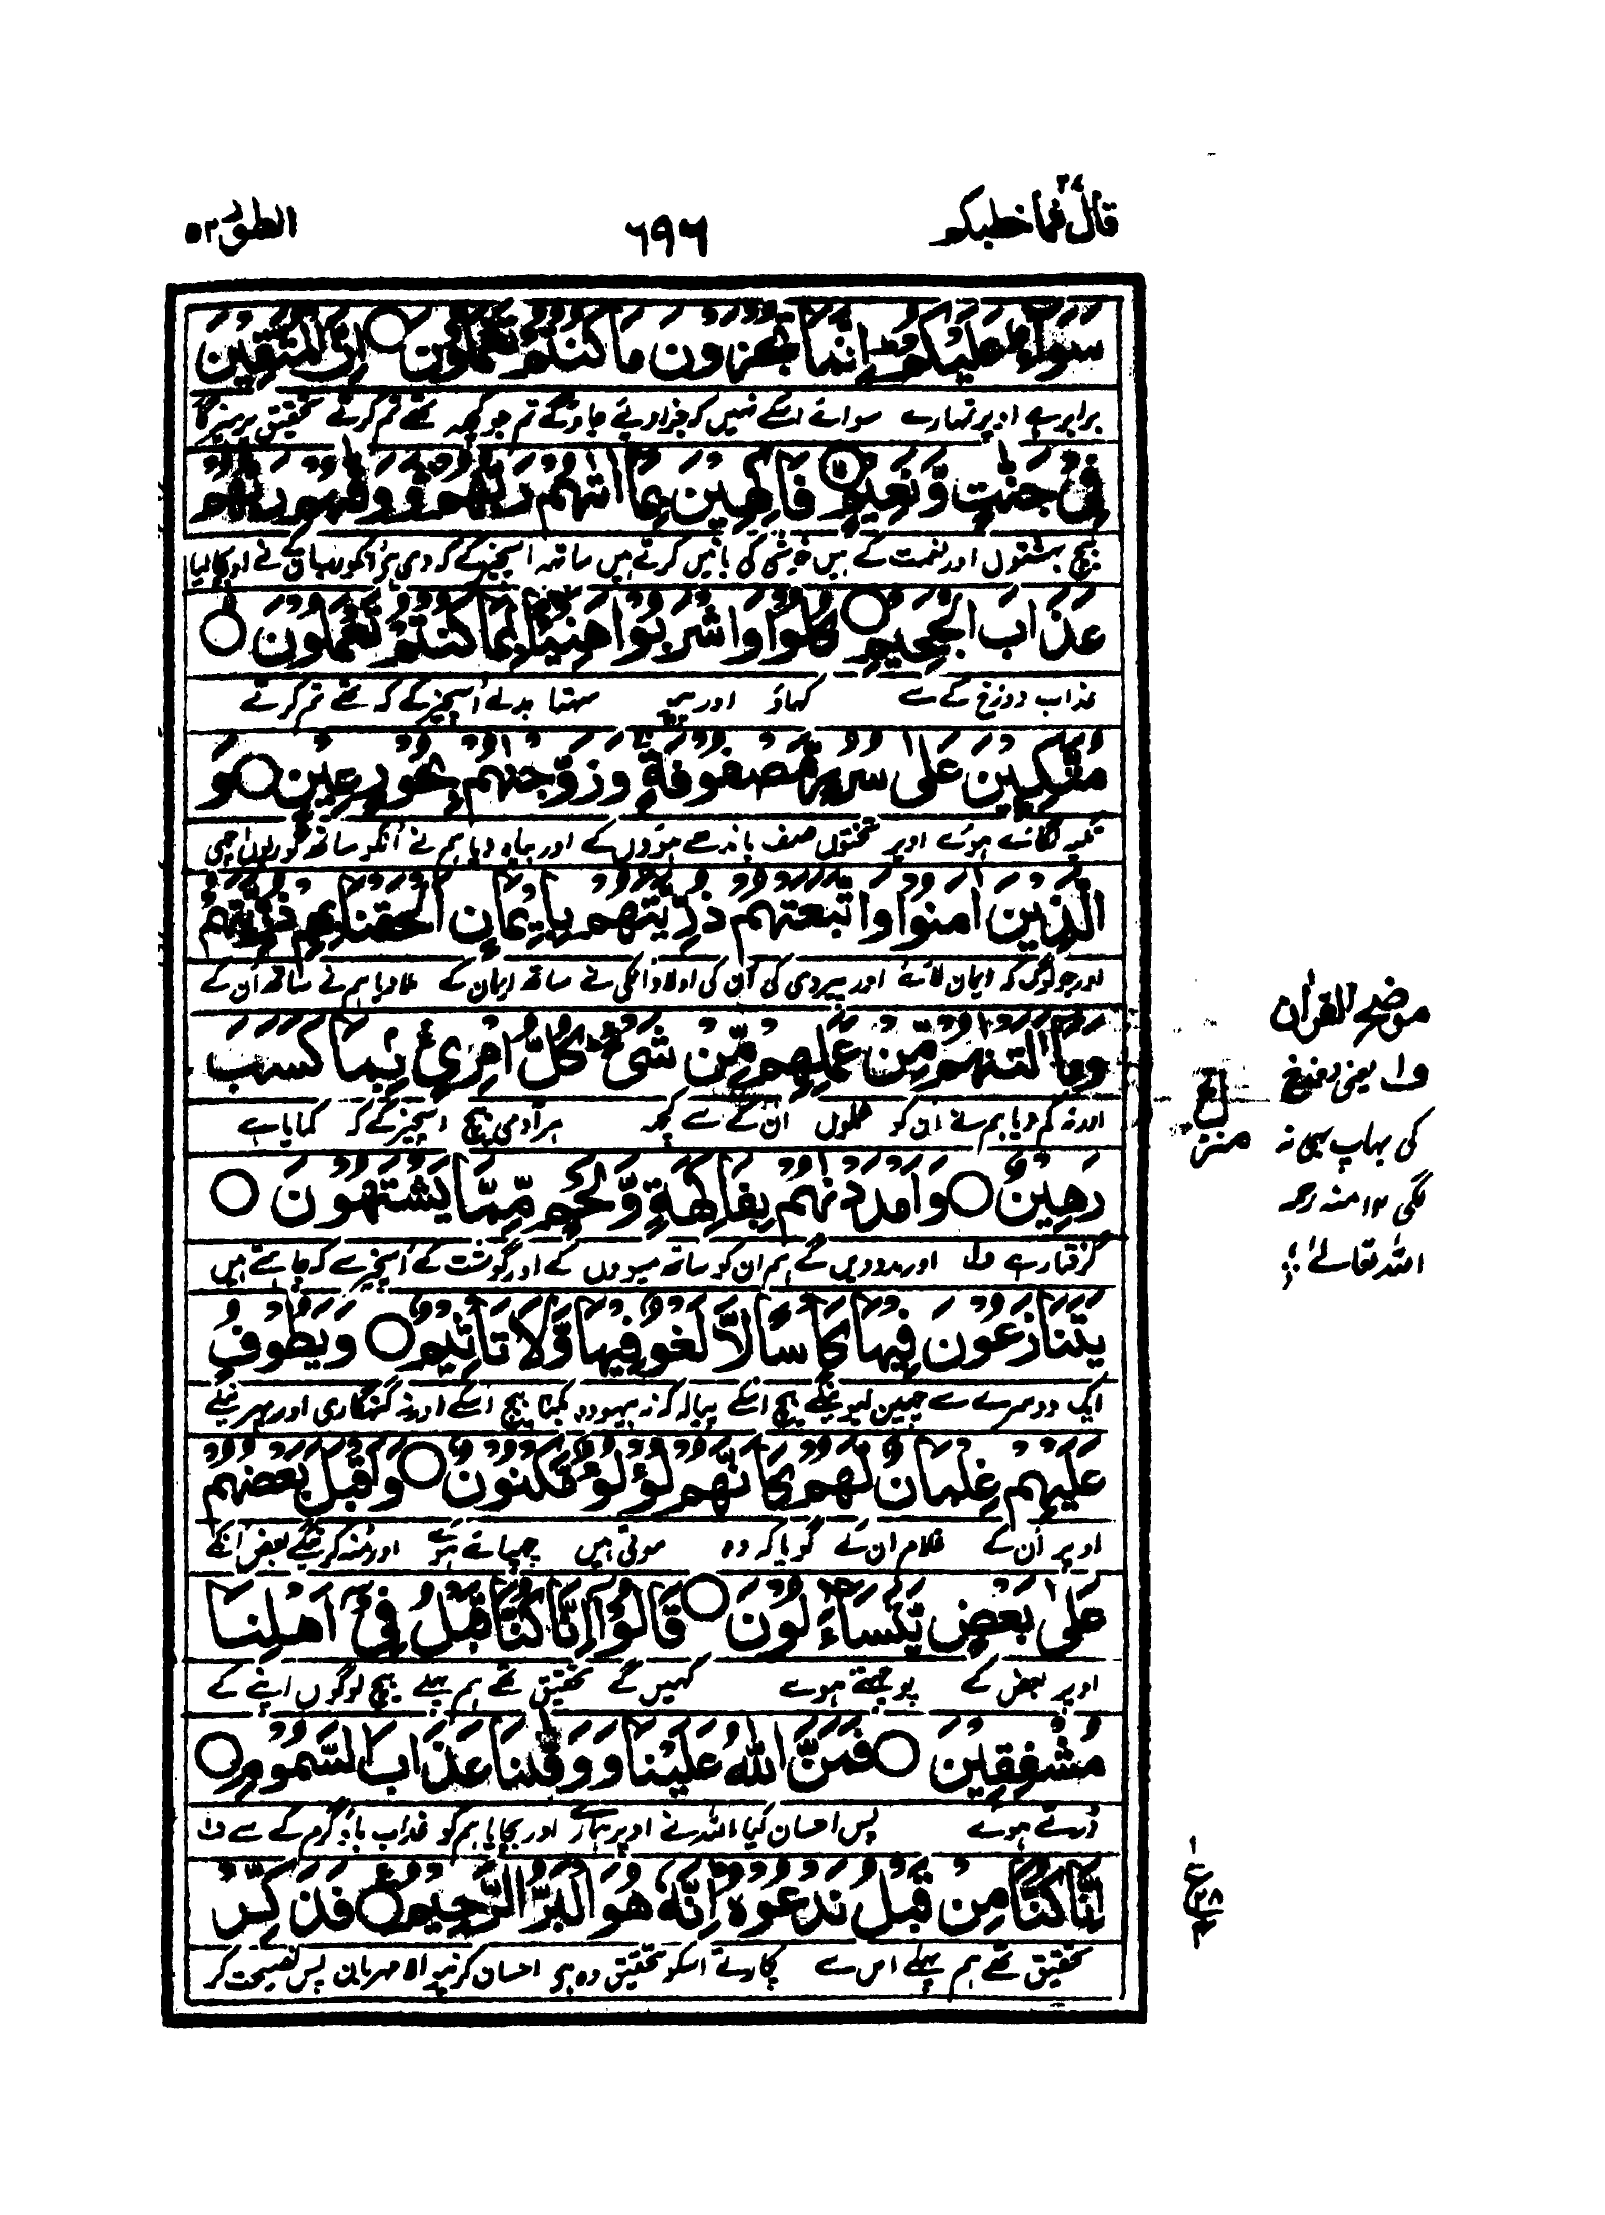 قال فما خطبکم ۲۷
۶۹۶
الطور ۵۲
سَوَآءٌ عَلَيْكُمْ ؕ اِنَّمَا تُجْزَوْنَ مَا كُنْتُمْ تَعْمَلُوْنَ ○ اِنَّ الْمُتَّقِيْنَ
برابر ہے اوپر تمہارے سوائے اسکے نہیں کہ جزا دئے جاؤگے تم جو کچھ تھے تم کرتے تحقیق پرہیزگار
فِيْ جَنّٰتٍ وَّنَعِيْمٍ ○ فَاكِهِيْنَ بِمَاۤ اٰتٰهُمْ رَبُّهُمْ ۚ وَوَقٰهُمْ رَبُّهُمْ
بیچ بہشتوں اور نعمت کے ہیں خوشی کی باتیں کرتے ہیں ساتھ اسچیز کے کہ دی ہے
عَذَابَ الْجَحِيْمِ ○ كُلُوْا وَاشْرَبُوْا هَنِيْٓـئًۢا بِمَا كُنْتُمْ تَعْمَلُوْنَ ○
عذاب دوزخ کے سے کھاؤ اور پیو سہتا بدلے اسچیز کے کہ تھے تم کرتے
مُتَّكِـِٕيْنَ عَلٰى سُرُرٍ مَّصْفُوْفَةٍ ۚ وَزَوَّجْنٰهُمْ بِحُوْرٍ عِيْنٍ ○ وَ
تکیہ لگائے ہوئے اوپر تختوں صف باندھے ہوؤں کے اور بیاہ دیا ہم نے انکو ساتھ گوریوں
الَّذِيْنَ اٰمَنُوْا وَاتَّبَعَتْهُمْ ذُرِّيَّتُهُمْ بِاِيْمَانٍ اَلْحَقْنَا بِهِمْ ذُرِّيَّتَهُمْ
اور جو لوگ کہ ایمان لائے اور پیروی کی ان کی اولاد انکی نے ساتھ ایمان کے ملا دیا ہم نے ساتھ ان کے
وَمَاۤ اَلَتْنٰهُمْ مِّنْ عَمَلِهِمْ مِّنْ شَيْءٍ ؕ كُلُّ امْرِئٍۢ بِمَا كَسَبَ
اور نہ کم دیا ہم نے ان کو عملوں ان کے سے کچھ ہر آدمی بیچ اسچیز کے کہ کمایا ہے
رَهِيْنٌ ○ وَاَمْدَدْنٰهُمْ بِفَاكِهَةٍ وَّلَحْمٍ مِّمَّا يَشْتَهُوْنَ ○
گرفتار ہے ف۱ اور مدد دیں گے ہم ان کو ساتھ میووں کے اور گوشت کے اسچیز سے کہ چاہتے ہیں
يَتَنَازَعُوْنَ فِيْهَا كَاْسًا لَّا لَغْوٌ فِيْهَا وَلَا تَاْثِيْمٌ ○ وَيَطُوْفُ
ایک دوسرے سے چھین لیوینگے بیچ اسکے پیالہ کہ نہ بیہودہ بکنا بیچ اسکے اور نہ گنہگاری اور پھرینگے
عَلَيْهِمْ غِلْمَانٌ لَّهُمْ كَاَنَّهُمْ لُؤْلُؤٌ مَّكْنُوْنٌ ○ وَاَقْبَلَ بَعْضُهُمْ
اوپر ان کے غلام ان کے گویا کہ وہ موتی ہیں چھپائے ہوئے اور منہ کرینگے بعض انکے
عَلٰى بَعْضٍ يَّتَسَآءَلُوْنَ ○ قَالُوْۤا اِنَّا كُنَّا قَبْلُ فِيْۤ اَهْلِنَا
اوپر بعض کے پوچھتے ہوے کہیں گے تحقیق تھے ہم پہلے بیچ لوگوں اپنے کے
مُشْفِقِيْنَ ○ فَمَنَّ اللّٰهُ عَلَيْنَا وَوَقٰىنَا عَذَابَ السَّمُوْمِ ○
ڈرتے ہوے پس احسان کیا اللہ نے اوپر ہمارے اور بچایا ہم کو عذاب باؤ گرم کے سے ف۱
اِنَّا كُنَّا مِنْ قَبْلُ نَدْعُوْهُ ؕ اِنَّهٗ هُوَ الْبَرُّ الرَّحِيْمُ ○ فَذَكِّرْ
تحقیق تھے ہم پہلے اس سے پکارتے اسکو تحقیق وہ ہی احسان کرنیوالا مہربان پس نصیحت کر
موضح القرآن
ف۱ یعنی دوزخ
کی بھاپ بھی نہ
لگی ۱۲ منہ رحمہ
اللہ تعالےٰ